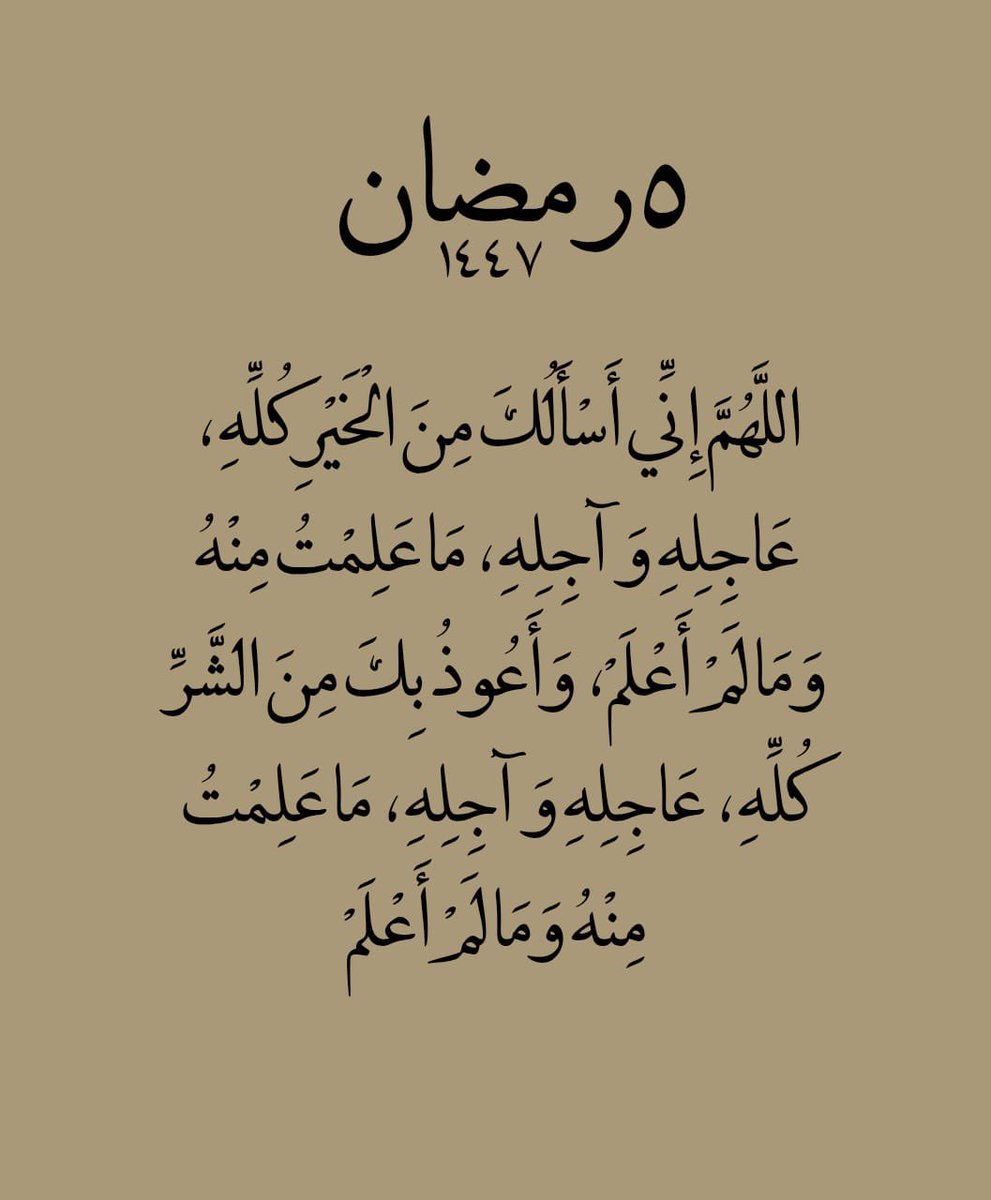 ٥ رمضان
١٤٤٧
اللَّهُمَّ إِنِّي أَسْأَلُكَ مِنَ الْخَيْرِ كُلِّهِ،
عَاجِلِهِ وَآجِلِهِ، مَا عَلِمْتُ مِنْهُ
وَمَا لَمْ أَعْلَمْ، وَأَعُوذُ بِكَ مِنَ الشَّرِّ
كُلِّهِ، عَاجِلِهِ وَآجِلِهِ، مَا عَلِمْتُ
مِنْهُ وَمَا لَمْ أَعْلَمْ